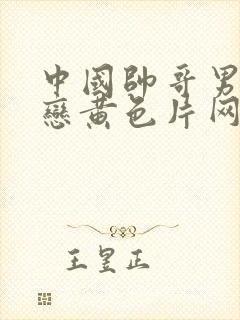 中國帥哥男
戀黃色片网
王昱正